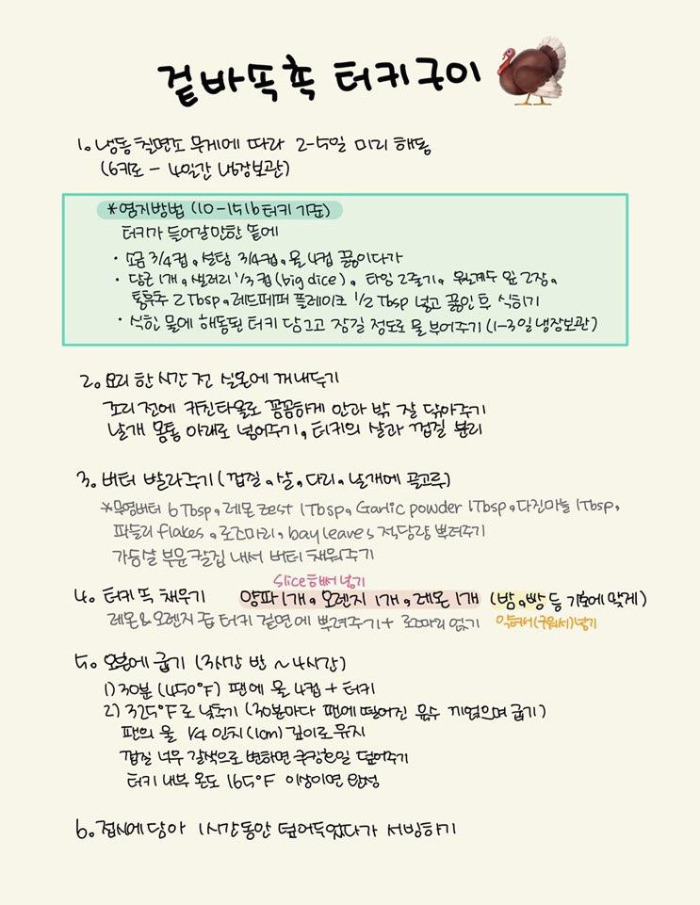 겉바속촉 터키구이
1. 냉동 칠면조 무게에 따라 2-5일 미리 해동
(6키로 - 4일간 냉장보관)
*염지방법 (10-15lb 터키 기준)
터키가 들어갈만한 통에
· 소금 3/4컵, 설탕 3/4컵, 물 4컵 끓이다가
· 당근 1개, 샐러리 1/3컵(big dice), 타임 2줄기, 월계수 잎 2장,
통후추 2 Tbsp, 레드페퍼 플레이크 1/2 Tbsp 넣고 끓인 후 식히기
· 식힌 물에 해동된 터키 담그고 잠길 정도로 물 부어주기 (1-3일 냉장보관)
2. 요리 한시간 전 실온에 꺼내두기
조리 전에 키친타올로 꼼꼼하게 안과 밖 잘 닦아주기
날개 몸통 아래로 넣어주기, 터키의 살과 껍질 분리
3. 버터 발라주기 (껍질, 살, 다리, 날개에 골고루)
*무염버터 6 Tbsp, 레몬 zest 1Tbsp, Garlic powder 1Tbsp, 다진마늘 1Tbsp,
파슬리 flakes, 로즈마리, bay leaves 적당량 뿌려주기
가슴살 부분 칼집 내서 버터 채워주기
slice해서 넣기
4. 터키 속 채우기 양파 1개, 오렌지 1개, 레몬 1개 (밤, 빵 등 기호에 맞게)
레몬&오렌지 즙 터키 겉면에 뿌려주기 + 로즈마리 얹기 익혀서(구워서)넣기
5. 오븐에 굽기 (3시간 반 ~ 4시간)
1) 30분 (450°F) 팬에 물 4컵 + 터키
2) 325°F로 낮추기 (30분마다 팬에 떨어진 육수 끼얹으며 굽기)
팬의 물 1/4 인치(1cm) 깊이로 유지
껍질 너무 갈색으로 변하면 쿠킹호일 덮어주기
터키 내부 온도 165°F 이상이면 완성
6. 접시에 담아 1시간동안 덮어두었다가 서빙하기